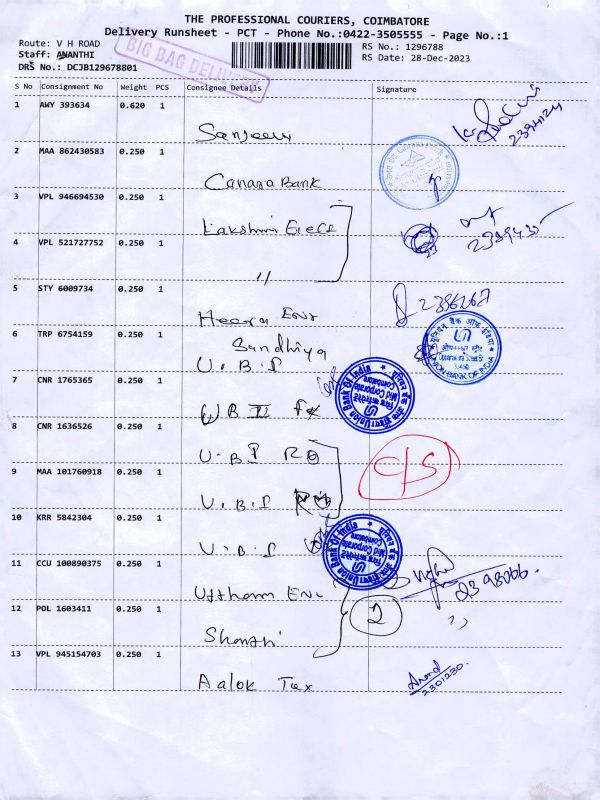 THE PROFESSIONAL COURIERS, COIMBATORE
Delivery Runsheet - PCT - Phone No.:0422-3505555 - Page No.:1
Route: V H ROAD
RS No.: 1296788
Staff: ANANTHI
RS Date: 28-Dec-2023
DRS No.: DCJB129678801
BIG BAG DELIVERY
S No Consignment No Weight PCS Consignee Details Signature
1 AWY 393634 0.620 1
Sanjeev
2394124
2 MAA 862430583 0.250 1
Canara Bank
3 VPL 946694530 0.250 1
Lakshmi Elecs
2389435
4 VPL 521727752 0.250 1
"
5 STY 6009734 0.250 1
Heera Ent
2386267
6 TRP 6754159 0.250 1
Sandhiya
U.B.I
यूनियन बैंक ऑफ इंडिया
UNION BANK OF INDIA
7 CNR 1765365 0.250 1
U B I
Union Bank Of India
Mid Corporate
Coimbatore
8 CNR 1636526 0.250 1
U.B.I RO
C/S
9 MAA 101760918 0.250 1
U.B.I
10 KRR 5842304 0.250 1
U.B.I
Union Bank Of India
Mid Corporate
Coimbatore
11 CCU 100890375 0.250 1
Uttham Enc
2398066
12 POL 1603411 0.250 1
Shanthi
2
"
13 VPL 945154703 0.250 1
Aalok Tax
Anand
2301230